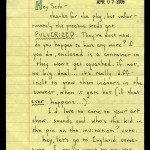 APR 07 2006
Hey Seth -
thanks for the pkg, but unfor-
tunately the precious seeds got
PULVERIZED. They're dust now.
do you happen to have any more? &
you do, enclosed is a container so
they won't get squished. if not,
no big deal... it's really diff-
icult to grow them indoors in the
summer, when it gets hot (if that
ever happens...).
I'd love to come to your art
show. sounds cool. who's the kid in
the pic on the invitation? cute.
hey, let's go to England some-
time.